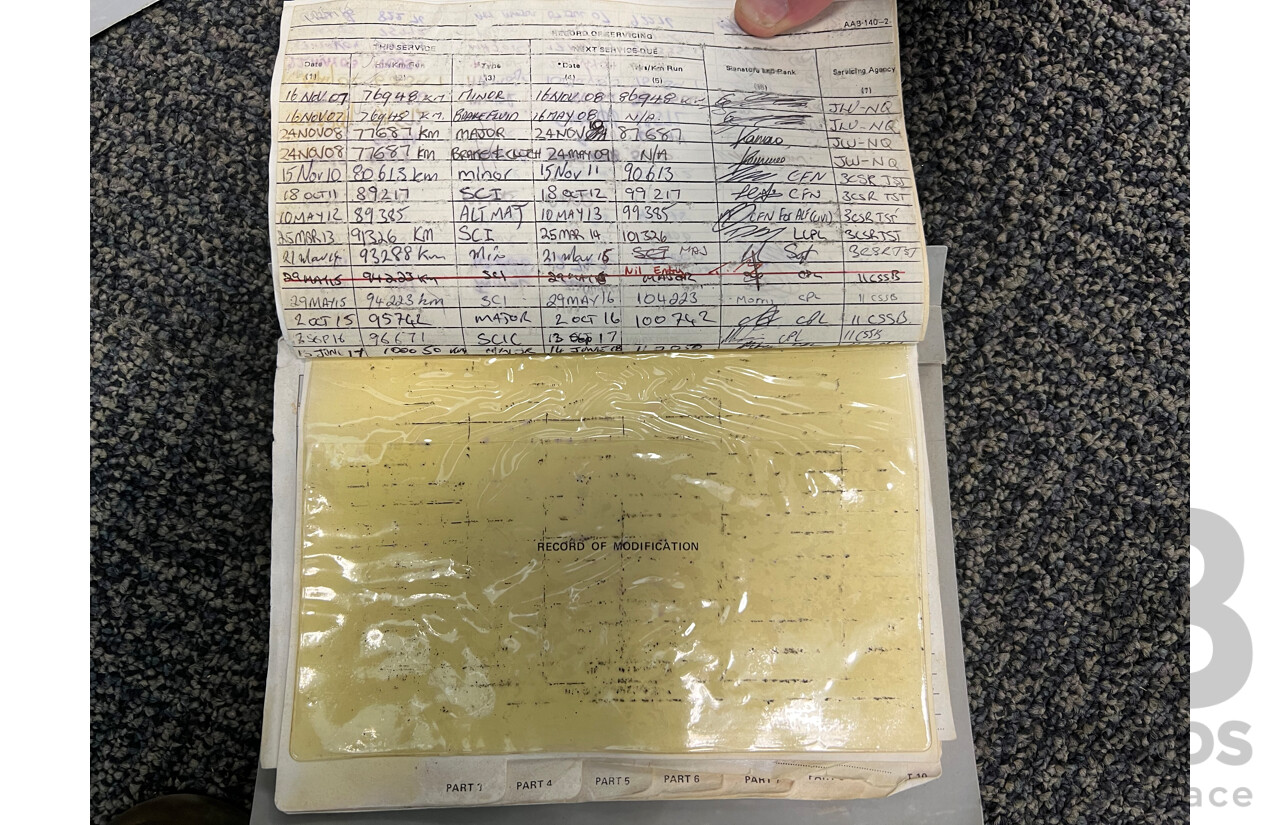 AAB-140-2
RECORD OF SERVICING
THIS SERVICE NEXT SERVICE DUE
Date Type *Date Km Run Signature and Rank Servicing Agency
(1) (3) (4) (5) (7)
16 NOV 07 76948 KM MINOR 16 NOV 08 86948 KM JLU-NQ
16 NOV 07 76948 KM BRAKE FLUID 16 MAY 08 N/A JLU-NQ
24 NOV 08 77687 KM MAJOR 24 NOV 87687 JLU-NQ
24 NOV 08 77687 KM BRAKE & CLCH 24 MAY 09 N/A JLU-NQ
15 Nov 10 80613 km minor 15 Nov 11 90613 CFN 3CSR TST
18 OCT 11 89217 SCI 18 OCT 12 99217 CFN 3CSR TST
10 MAY 12 89385 10 MAY 13 99385 CFN For 3CSR TST
25 MAR 13 91326 KM SCI 25 MAR 14 101326 LCPL 3CSR TST
21 Mar 14 93288 Km Min 21 Mar 15 SCI MAJ Sgt 3CSR TST
Nil Entry
29 MAY 15 94223 Km SCI 29 MAY MAJOR CPL 11 CSSB
29 MAY 15 94223 km SCI 29 MAY 16 104223 CPL 11 CSSB
2 OCT 15 95742 MAJOR 2 OCT 16 100742 CPL 11 CSSB
SEP 16 96671 SCIC 13 SEP 17 CPL 11 CSSB
JUNE 17 100050 KM MINOR JUNE 18
RECORD OF MODIFICATION
PART 3 PART 4 PART 5 PART 6